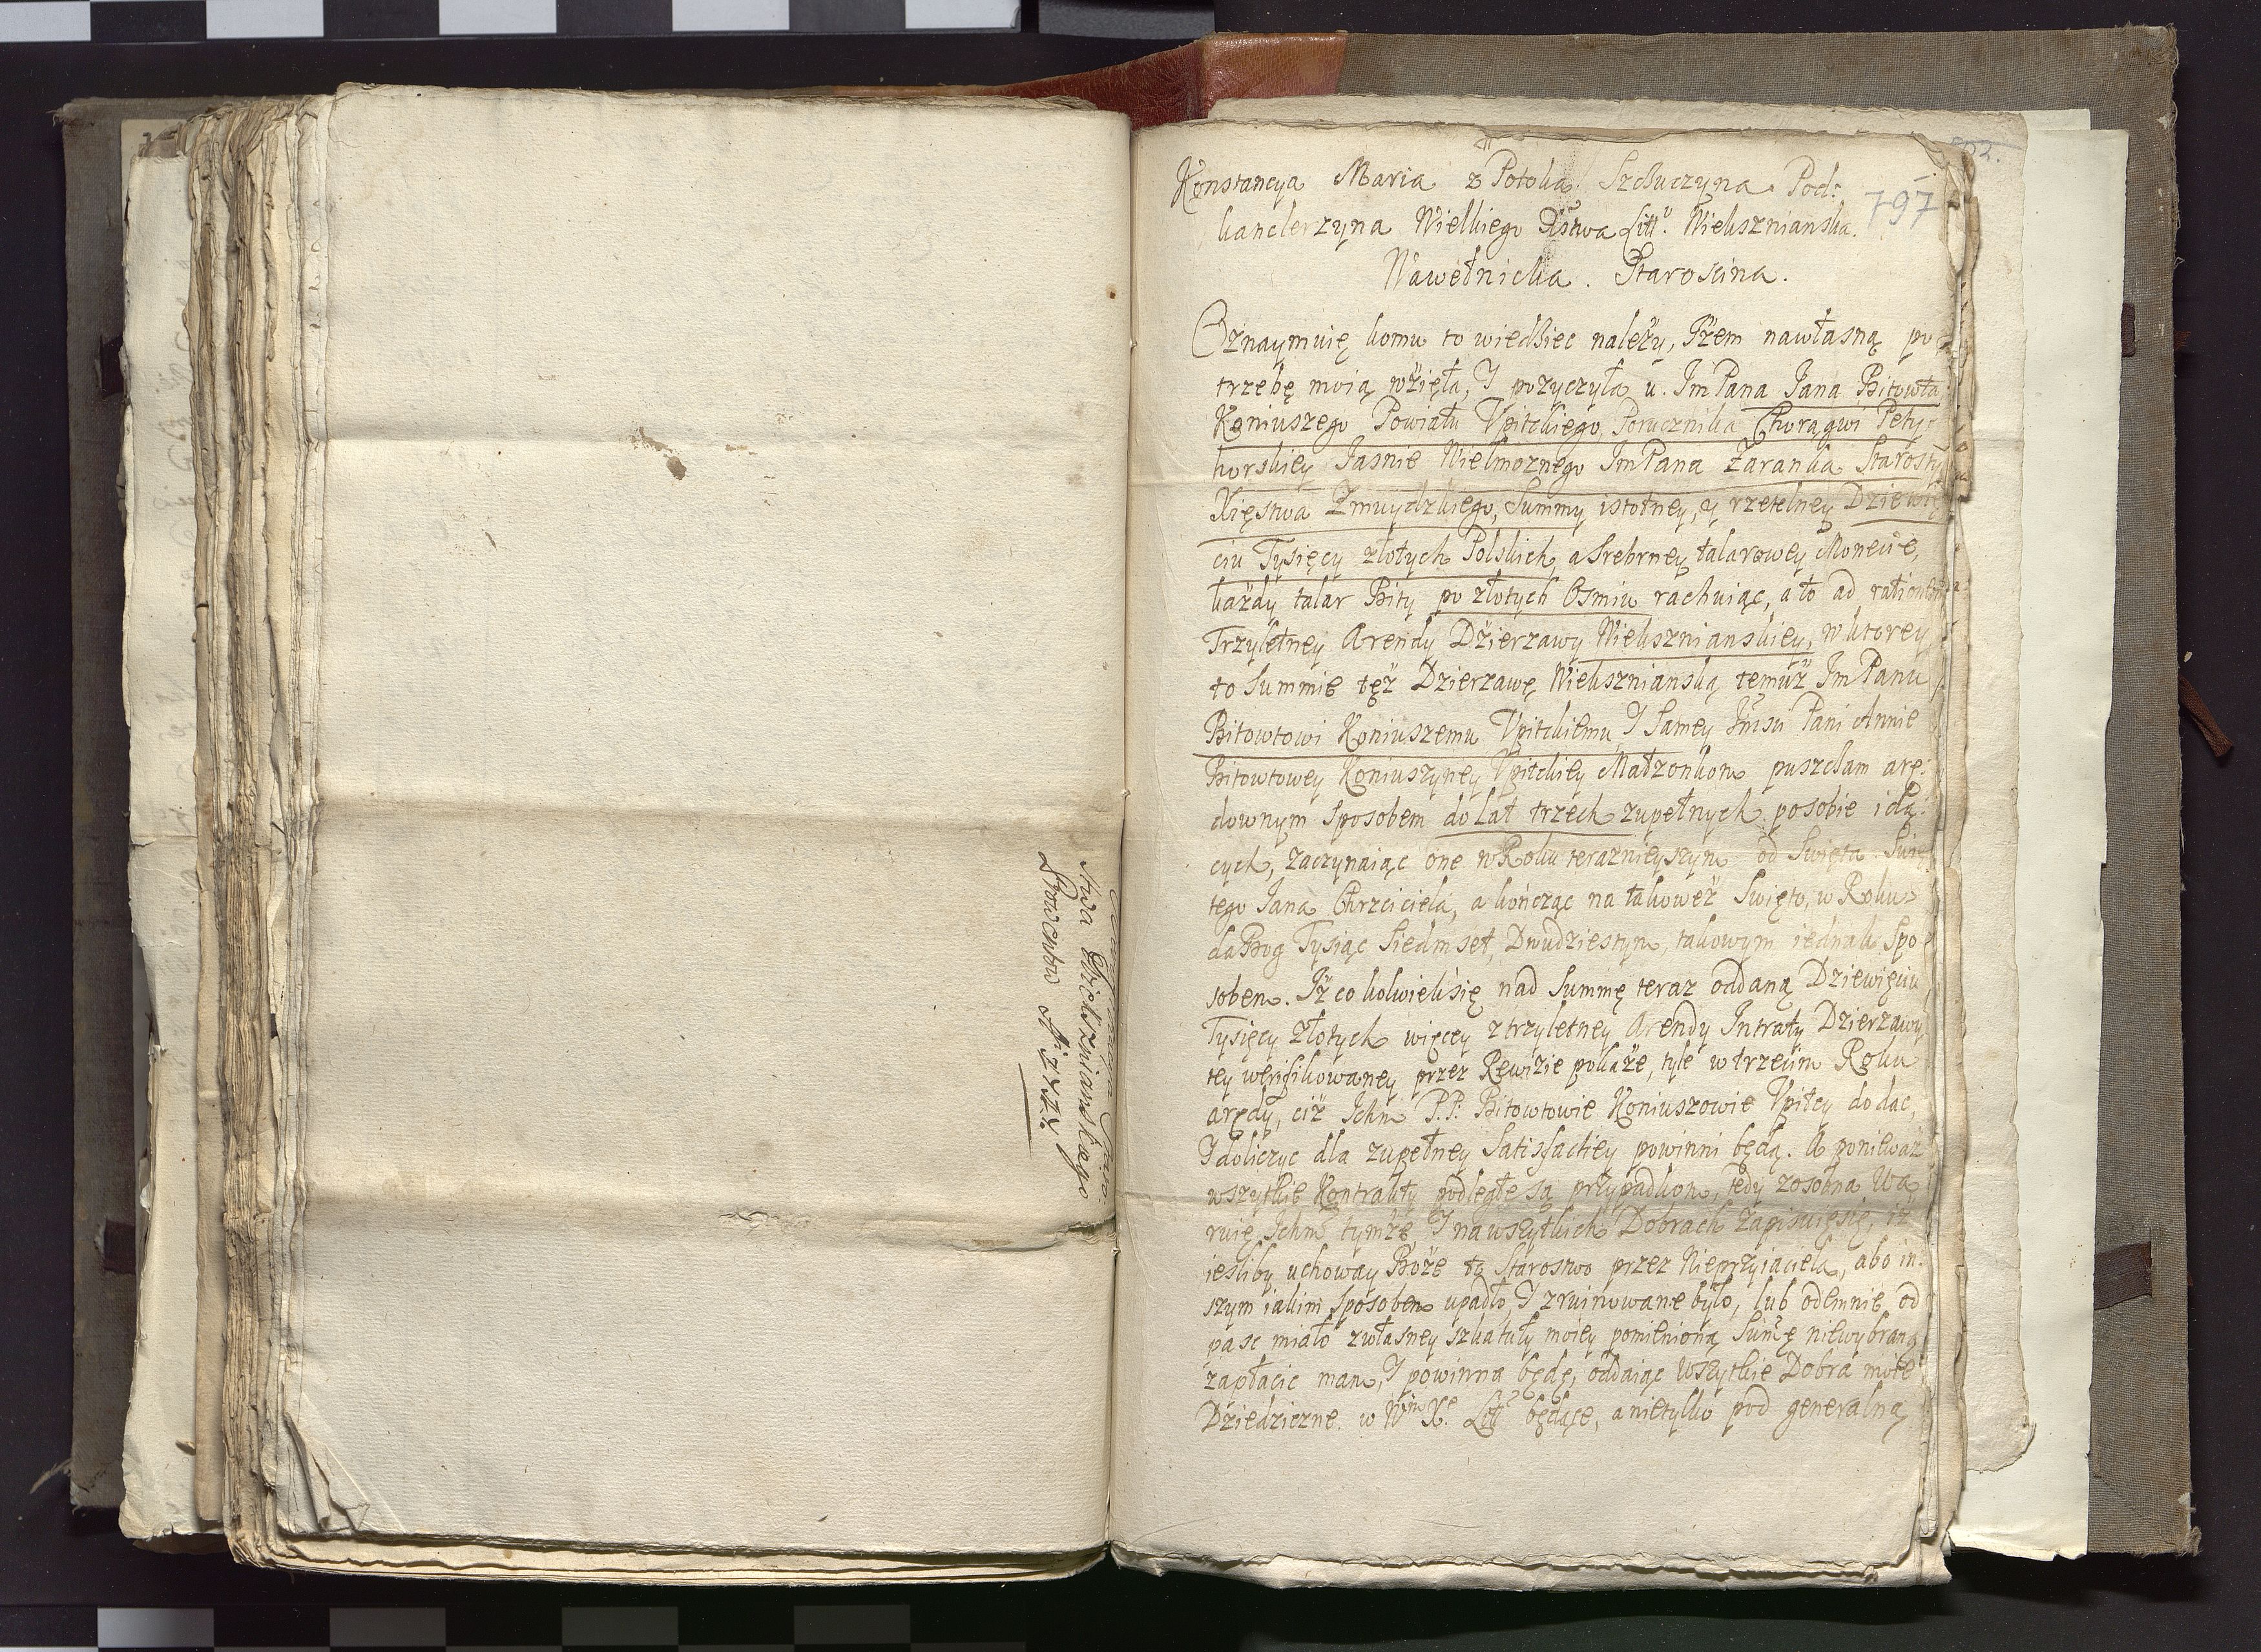 stwa Wiekszniańskiego
Prowentow A: 1717.
502.
797
Konstancya Maria z Potoka Szczuczyna Pod:
kanclerzyna Wielkiego Xstwa Litt: Wieksznianska.
Wawełnicka. Starościna.
Oznaymuię komu to wiedziec należy, Iżem nawłasną po
trzebę moią wzięła, I pozyczyła u. ImPana Jana Bitowta
Koniuszego Powiatu Vpitckiego, Porucznika Chorągwi Pety-
horskiey Jasnie Wielmoznego ImPana Zaranka Starosty
Xięstwa Zmuydzkiego, Summy istotney, y rzetelney Dziewię
ciu Tysięcy złotych Polskich, a Srebrney talarowey Monecie,
każdy talar Bity po złotych Osmiu rachuiąc, a to ad rationem
Trzyletney Arendy Dzierzawy Wieksznianskiey, w ktorey
to Summie też Dzierzawę Wiekszniańską temuż ImPanu
Bitowtowi Koniuszemu Vpitckiemu I Samey Imsci Pani Annie
Bitowtowey Koniuszyney Vpitckiey Małzonkom puszczam arę:
downym sposobem do Lat trzech zupełnych posobie idą:
cych, zaczynaiąc one w Roku terazniejszym od Swięta Swię
tego Jana Chrzciciela, a kończąc na takoweż Swięto, w Roku
da Bog Tysiąc Siedmset, Dwudziestym, takowym iednak Spo-
sobem. Iż cokolwiek się nad Summę teraz oddaną Dziewięciu
Tysięcy złotych więcey z trzyletney Arendy Intraty Dzierzawy
tey weryfikowaney przez Rewizie pokaże, tyle w trzecim Roku
arędy, ciż Ichm P.P: Bitowtowie Koniuszowie Vpitcy dodac,
I doliczyc dla zupełney Satisfactiey powinni będą. A ponieważ
wszytkie Kontrakty podległe są przypadkom, tedy zosobna Wa
ruię Ichm tymże I na wszytkich Dobrach zapisuię się, iż
iesliby uchoway Boże to Starostwo przez Nieprzyiaciela, abo in:
szym iakim sposobem upadło, I zruinowane było, lub odemnie od
pasc miało z własney szkatuły moiey pomienioną Summę niewybraną
zapłacic mam, I powinna będę, oddaiąc Wszytkie Dobra moie
Dziedziczne w Wm Xe Litt: będące, a nietylko pod generalną